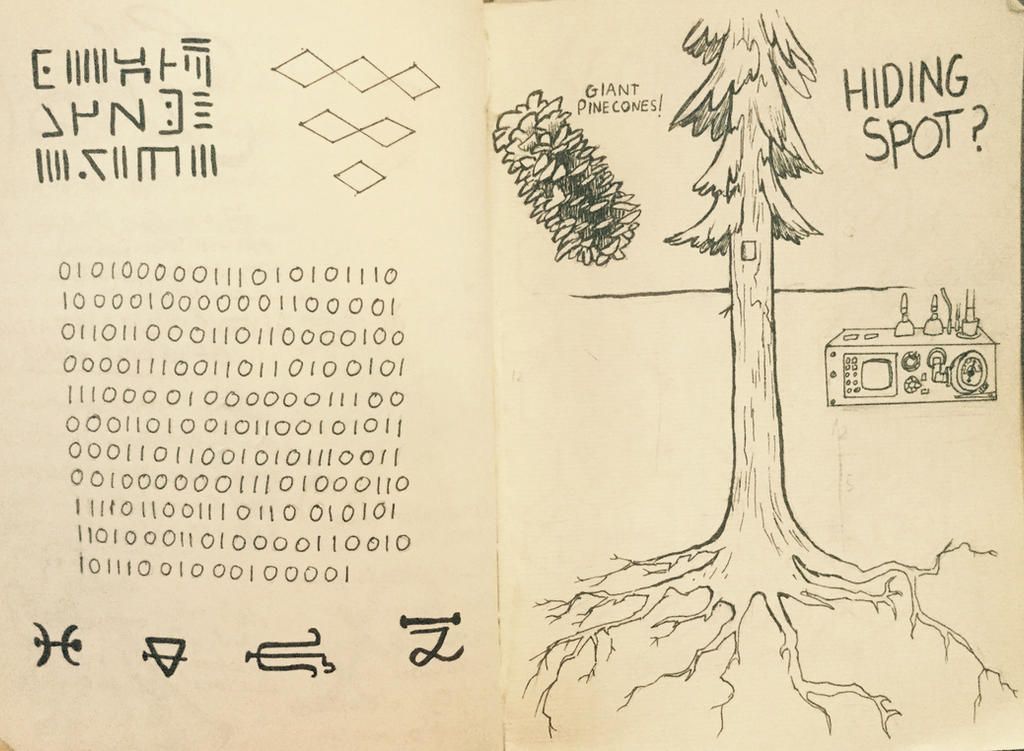 HIDING
SPOT?
GIANT
PINECONES!
010100000111010101110
1000010000001100001
011011000110110000100
000011100110110100101
11100000100000011100
000110100101100101011
000110110010101110011
00100000011101000110
1111011001110110010101
110100011010000110010
10111001000100001